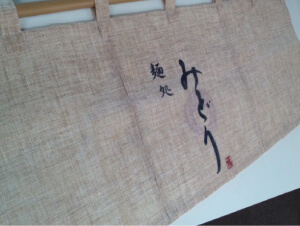 麺処
みどり